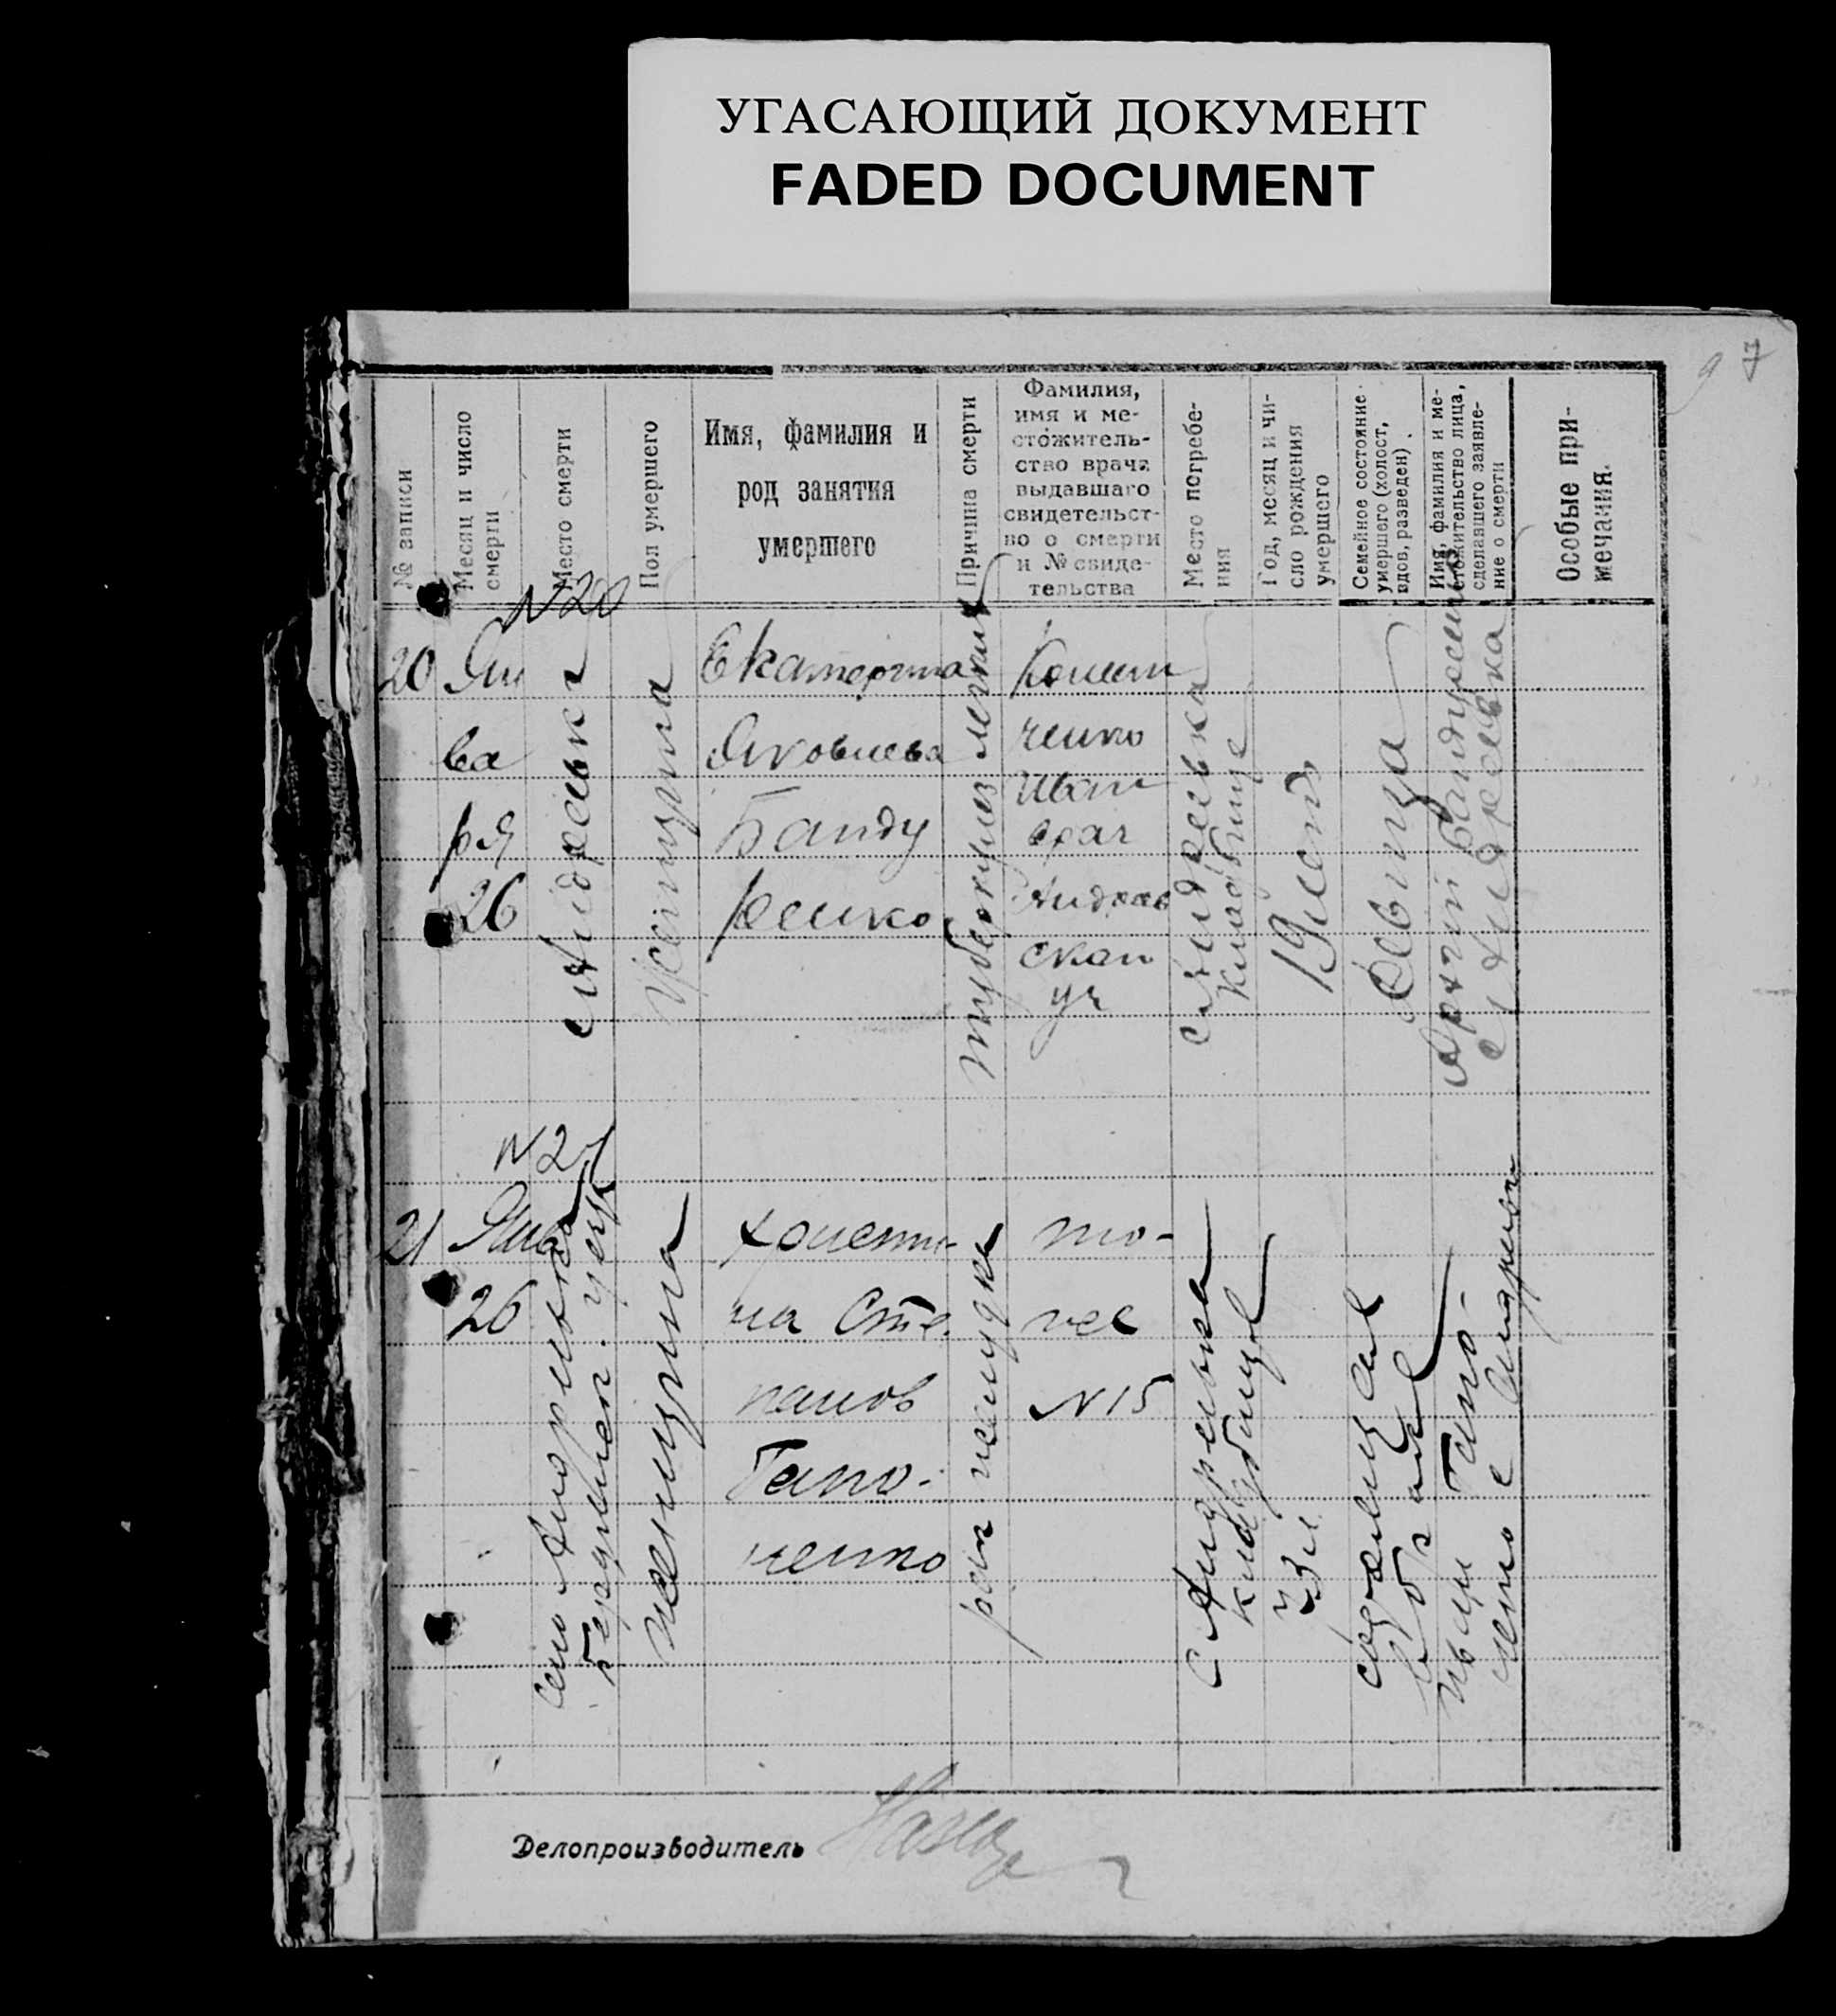 УГАСАЮЩИЙ ДОКУМЕНТ
FADED DOCUMENT
97
№ записи
Месяц и число
смерти
Место смерти
Пол умершего
Имя, фамилия и
род занятия
умершего
Причина смерти
Фамилия,
имя и ме-
стожитель-
ство врача
выдавшаго
свидетельст-
во о смерти
и № свиде-
тельства
Место погребе-
ния
Год, месяц и чи-
сло рождения
умершего
Семейное состояние
умершего (холост,
вдов, разведен).
Имя, фамилия и ме-
стожительство лица,
сделавшего заявле-
ние о смерти
Особые при-
мечания.
N20
20
Ян
ва
ря
26
Андреевка
Женщина
Екатерина
Яковлева
Банду
ренко
туберкулез легких
Ваня
врач
Андреев
скаи
уч
с Андреевка
Кладбище
19 лет
Девица
Сергий Бандуренко
с Андреевка
N21
21
Янва
26
Село Андреевка
Бердянск.
женщина
Христи-
на Сте-
панов
Гапо-
ненко
рак желудка
то-
же
N15
с Андреевка
кладбище
73 л
Гапо-
ненко с Андреевка
Делопроизводитель